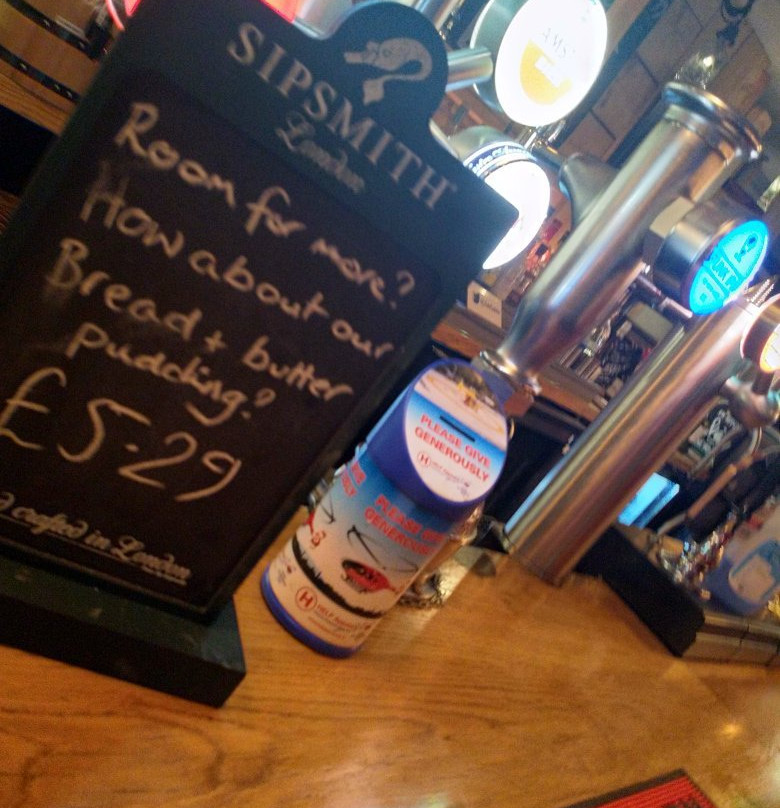 SIPSMITH
London
Room for more?
How about our
Bread + butter
pudding?
£5.29
crafted in London
PLEASE GIVE
GENEROUSLY
PLEASE
GENEROUSLY
H